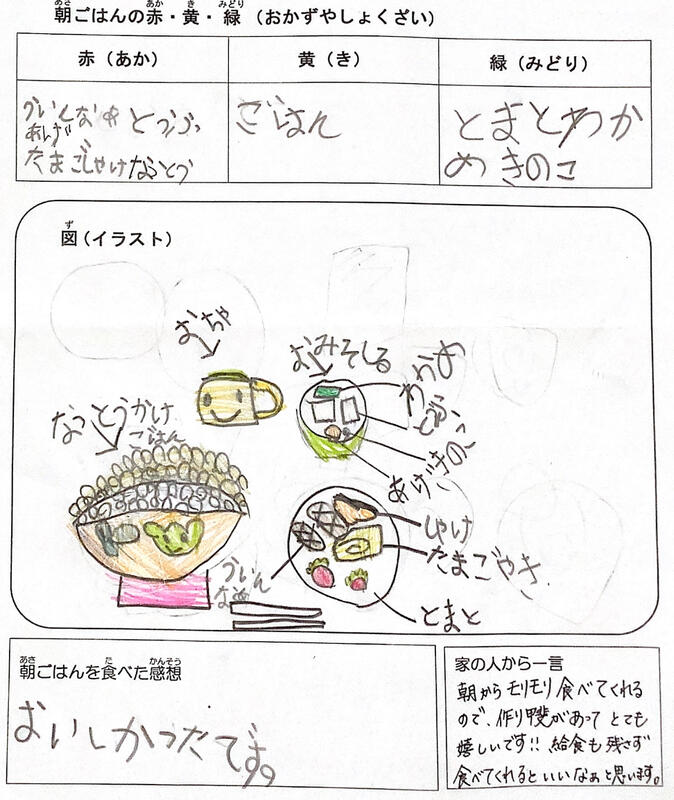 朝ごはんの赤・黄・緑（おかずやしょくざい）
赤（あか）
黄（き）
緑（みどり）
ういんなぁ とうふ
あげ
たまごしゃけなっとう
ごはん
とまとわか
めきのこ
図（イラスト）
おちゃ
おみそしる
わかめ
とうふ
きのこ
あげ
なっとうかけ
ごはん
しゃけ
たまごやき
ういん
なぁ
とまと
朝ごはんを食べた感想
おいしかったです。
家の人から一言
朝からモリモリ食べてくれる
ので、作り甲斐があって とても
嬉しいです!! 給食も残さず
食べてくれるといいなぁと思います。